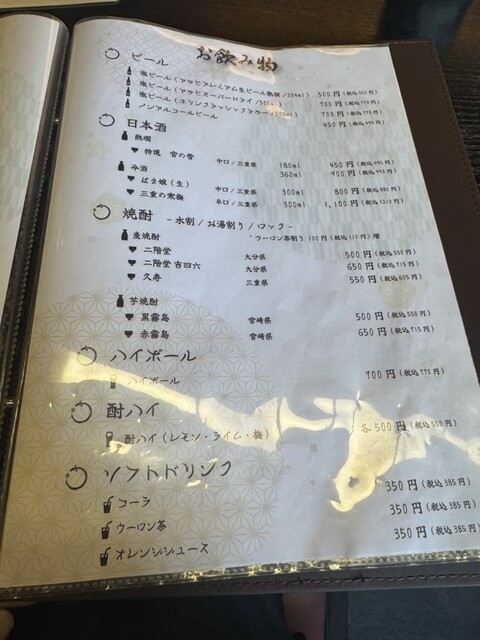 お飲み物
ビール
瓶ビール（アサヒプレミアム生ビール熟撰/334ml） 500円（税込550円）
瓶ビール（アサヒスーパードライ/500ml） 700円（税込770円）
瓶ビール（キリンクラシックラガー/500ml） 700円（税込770円）
ノンアルコールビール 450円（税込495円）
日本酒
熱燗
特選 宮の雪 中口/三重県 180ml 450円（税込495円）
360ml 900円（税込990円）
冷酒
はま娘（生） 中口/三重県 300ml 800円（税込880円）
三重の寒梅 辛口/三重県 300ml 1,100円（税込1210円）
焼酎 -水割/お湯割り/ロック-
麦焼酎 ・ウーロン茶割り 100円（税込110円）増
二階堂 大分県 500円（税込550円）
二階堂 吉四六 大分県 650円（税込715円）
久寿 三重県 550円（税込605円）
芋焼酎
黒霧島 宮崎県 500円（税込550円）
赤霧島 宮崎県 650円（税込715円）
ハイボール
ハイボール 700円（税込770円）
酎ハイ
酎ハイ（レモン・ライム・梅） 各500円（税込550円）
ソフトドリンク
コーラ 350円（税込385円）
ウーロン茶 350円（税込385円）
オレンジジュース 350円（税込385円）